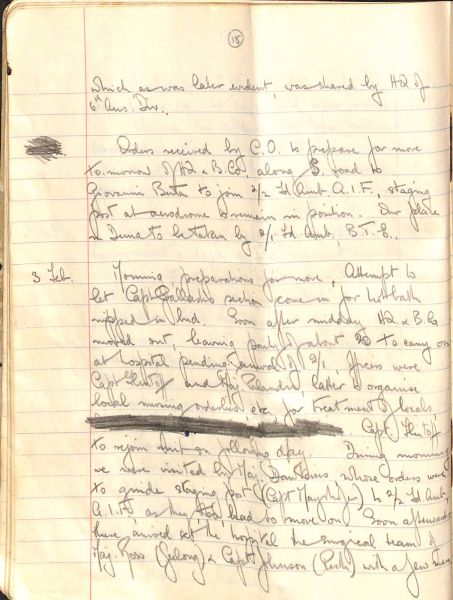 18
which as was later evident, was shared by HQ of
6th Aus. Div.
Orders received by C.O. to prepare for move
to-morrow of HQ & B. Co. along S. road to
Giovanni Berta to join 2/2 Fd Amb. A.I.F., staging
post at aerodrome to remain in position. Our place
in Derna to be taken by 2/1 Fd Amb., B.T.E.
3 Feb. Morning preparations for move. Attempt to
let Capt section come in for hot bath
nipped in bud. Soon after midday HQ & B. Co
moved out, leaving party of about 20 to carry on
at hospital pending arrival of 2/1, Officers were
Capt and Maj. latter to organise
local nursing orderlies etc. for treatment of locals,
Capt
to rejoin unit on following day. During morning
we were visited by Maj. whose orders were
to guide staging post (Capt ) to 2/2 Fd Amb.
A.I.F., as they had to move on. Soon afterwards
there arrived at the hospital the surgical team of
Maj. Ross (Geelong) & Capt Johnson (Perth) with a few men